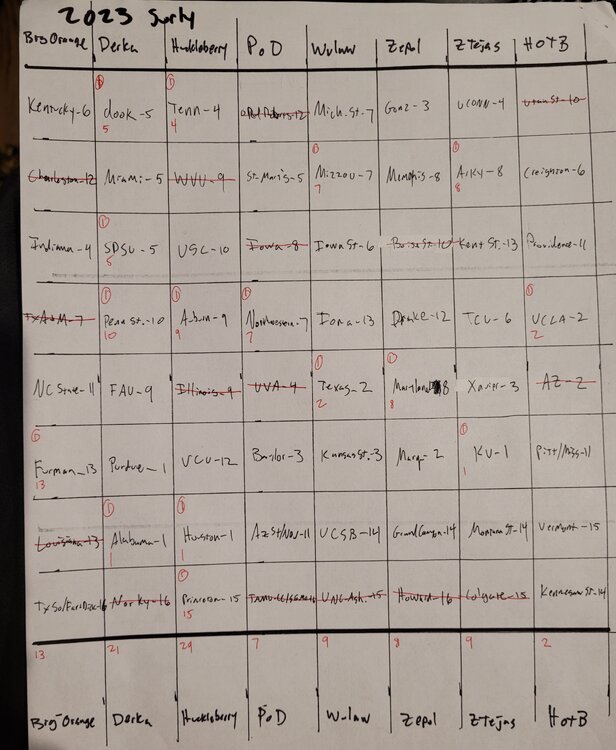 2023 Surly
Brj Orange Derka Huckleberry PoD Wulaw Zepol ZTejas HOTB
① ①
Kentucky-6 dook-5 Tenn-4 Oral Roberts-12 Mich. St.-7 Gonz-3 UCONN-4 Utah St-10
5 4
① ①
Charleston-12 Miami-5 WVU-9 St. Mary's-5 Mizzou-7 Memphis-8 Arky-8 Creighton-6
7 8
①
Indiana-4 SDSU-5 USC-10 Iowa-8 Iowa St-6 Boise St-10 Kent St.-13 Providence-11
5
① ① ① ①
TxA&M-7 Penn St.-10 Auburn-9 Northwestern-7 Iona-13 Drake-12 TCU-6 UCLA-2
10 9 7 2
① ①
NC State-11 FAU-9 Illinois-9 UVA-4 Texas-2 Maryland 8 Xavier-3 AZ-2
2 8
① ①
Furman-13 Purdue-1 VCU-12 Baylor-3 Kansas St.-3 Marq-2 KU-1 Pitt/Miss-11
13 1
① ①
Louisiana-13 Alabama-1 Houston-1 AzSt/Nev-11 UCSB-14 Grand Canyon-14 Montana St-14 Vermont-15
1 1
①
TxSo/FairDick-16 Norky-16 Princeton-15 UNC Ash.-15 Howard-16 Colgate-15 Kennesaw St-14
15
13 21 29 7 9 8 9 2
Brj-Orange Derka Huckleberry PoD Wulaw Zepol ZTejas HOTB